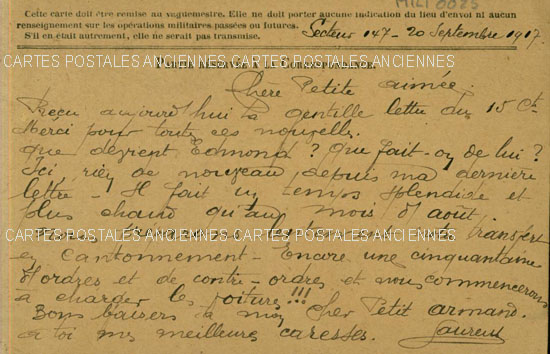 MILI 0025
Cette carte doit être remise au vaguemestre. Elle ne doit porter aucune indication du lieu d'envoi ni aucun
renseignement sur les opérations militaires passées ou futures.
S'il en était autrement, elle ne serait pas transmise.
Secteur 147 - 20 Septembre 1917.
CARTES POSTALES ANCIENNES CARTES POSTALES ANCIENNES
Chère Petite aimée,
Reçu aujourd'hui ta gentille lettre du 15 ct.
Merci pour toutes ces nouvelles.
que devient Edmond? Que fait-on de lui?
Ici, rien de nouveau depuis ma dernière
lettre - Il fait un temps splendide et
plus chaud qu'au mois d'août.
CARTES POSTALES ANCIENNES CARTES POSTALES ANCIENNES
transfert
en cantonnement - Encore une cinquantaine
d'ordres et de contre-ordres et nous commencerons
à charger les voitures!!!
Bons baisers à mon cher Petit Armand.
à toi mes meilleures caresses. Laurent